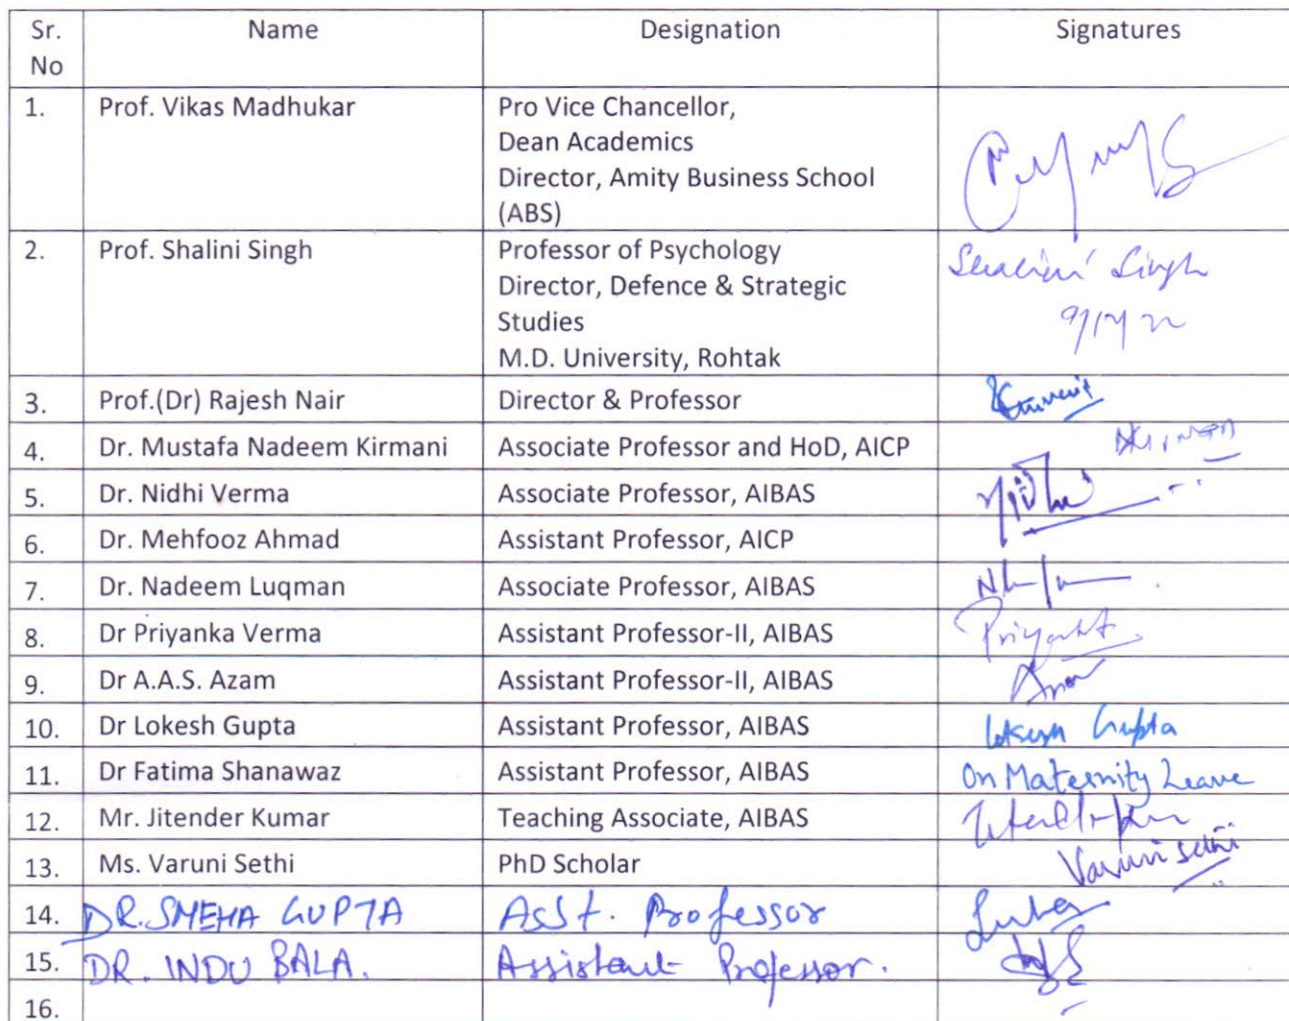 Sr. No Name Designation Signatures
1. Prof. Vikas Madhukar Pro Vice Chancellor,
Dean Academics
Director, Amity Business School
(ABS)
2. Prof. Shalini Singh Professor of Psychology Shalini Singh
Director, Defence & Strategic
Studies
M.D. University, Rohtak
3. Prof.(Dr) Rajesh Nair Director & Professor
4. Dr. Mustafa Nadeem Kirmani Associate Professor and HoD, AICP
5. Dr. Nidhi Verma Associate Professor, AIBAS Nidhi
6. Dr. Mehfooz Ahmad Assistant Professor, AICP
7. Dr. Nadeem Luqman Associate Professor, AIBAS
8. Dr Priyanka Verma Assistant Professor-II, AIBAS
9. Dr A.A.S. Azam Assistant Professor-II, AIBAS
10. Dr Lokesh Gupta Assistant Professor, AIBAS Lokesh Gupta
11. Dr Fatima Shanawaz Assistant Professor, AIBAS On Maternity Leave
12. Mr. Jitender Kumar Teaching Associate, AIBAS
13. Ms. Varuni Sethi PhD Scholar Varuni Sethi
14. DR. SNEHA GUPTA Asst. Professor
15. DR. INDU BALA. Assistant Professor.
16.